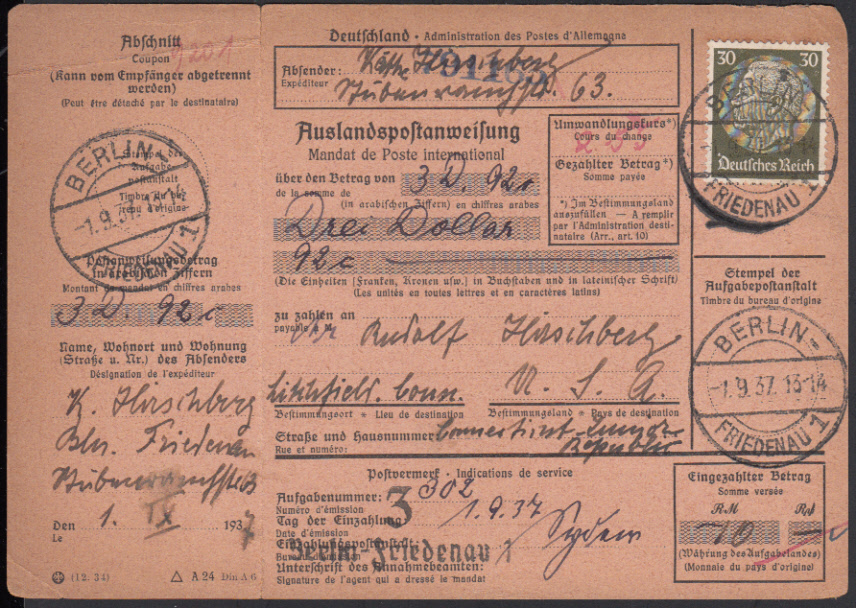 Abschnitt
Coupon
9201
(Kann vom Empfänger abgetrennt
werden)
(Peut être détaché par le destinataire)
BERLIN-
-1.9.37.
FRIEDENAU 1
postanstalt
Timbre du bu-
reau d'origine
Postanweisungsbetrag
in arabischen Ziffern
Montant du mandat en chiffres arabes
3 D. 92 c
Name, Wohnort und Wohnung
(Straße u. Nr.) des Absenders
Désignation de l'expéditeur
K. Hirschberg
Bln. Friedenau
Stubenrauchstr. 63
Den 1. IX 1937
Le
(12. 34) △ A 24 Din A 6
Deutschland · Administration des Postes d'Allemagne
Absender: Käthe Hirschberg
Expéditeur Stubenrauchstr. 63.
Auslandspostanweisung
Mandat de Poste international
über den Betrag von 3 D. 92 c
de la somme de (in arabischen Ziffern) en chiffres arabes
Drei Dollar
92 c
(Die Einheiten (Franken, Kronen usw.) in Buchstaben und in lateinischer Schrift)
(Les unités en toutes lettres et en caractères latins)
Umwandlungskurs*)
Cours du change
Gezahlter Betrag*)
Somme payée
*) Im Bestimmungsland
auszufüllen — A remplir
par l'Administration desti-
nataire (Arr., art. 10)
zu zahlen an
payable à Rudolf Hirschberg
Litchfield. Conn. U. S. A.
Bestimmungsort * Lieu de destination Bestimmungsland * Pays de destination
Straße und Hausnummer
Rue et numéro:
Postvermerk · Indications de service
Aufgabenummer: 3 302
Numéro d'émission
Tag der Einzahlung 1.9.37
Date d'émission
Einzahlungspostanstalt:
Berlin-Friedenau 1
Unterschrift des Annahmebeamten:
Signature de l'agent qui a dressé le mandat
30 30
Deutsches Reich
BERLIN-
FRIEDENAU 1
Stempel der
Aufgabepostanstalt
Timbre du bureau d'origine
BERLIN-
-1.9.37. 13-14
FRIEDENAU 1
Eingezahlter Betrag
Somme versée
RM Rpf
10
(Währung des Aufgabelandes)
(Monnaie du pays d'origine)